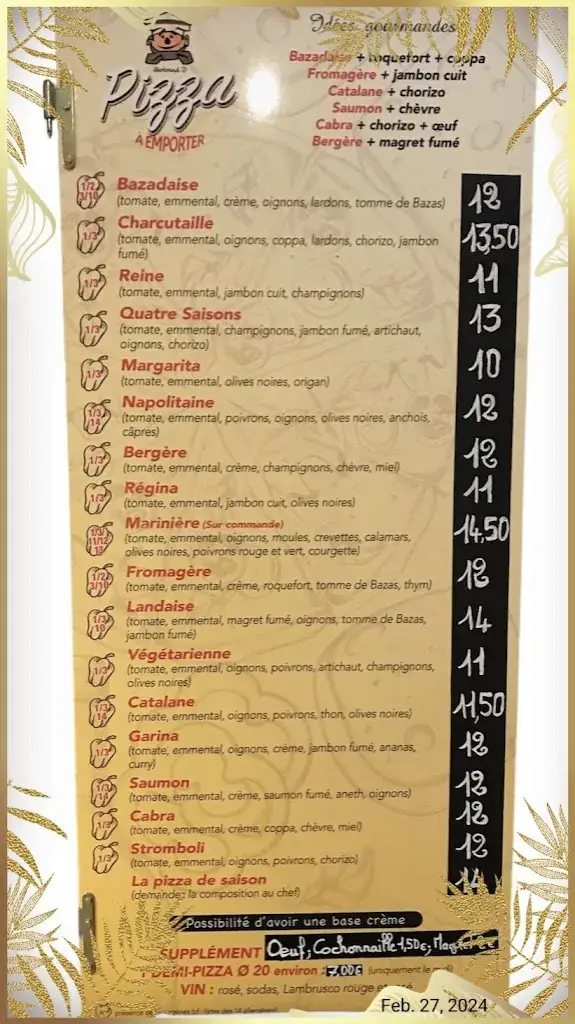 Pizza
À EMPORTER
Idées gourmandes
Bazadaise + roquefort + coppa
Fromagère + jambon cuit
Catalane + chorizo
Saumon + chèvre
Cabra + chorizo + œuf
Bergère + magret fumé
1/2 3/10 Bazadaise 12
(tomate, emmental, crème, oignons, lardons, tomme de Bazas)
1/3 Charcutaille 13,50
(tomate, emmental, oignons, coppa, lardons, chorizo, jambon
fumé)
1/3 Reine 11
(tomate, emmental, jambon cuit, champignons)
1/3 Quatre Saisons 13
(tomate, emmental, champignons, jambon fumé, artichaut,
oignons, chorizo)
1/3 Margarita 10
(tomate, emmental, olives noires, origan)
1/3 14 Napolitaine 12
(tomate, emmental, poivrons, oignons, olives noires, anchois,
câpres)
1/3 Bergère 12
(tomate, emmental, crème, champignons, chèvre, miel)
1/3 Régina 11
(tomate, emmental, jambon cuit, olives noires)
1/3/ 11/12 13 Marinière (Sur commande) 14,50
(tomate, emmental, oignons, moules, crevettes, calamars,
olives noires, poivrons rouge et vert, courgette)
1/2 3/10 Fromagère 12
(tomate, emmental, crème, roquefort, tomme de Bazas, thym)
1/3 /10 Landaise 14
(tomate, emmental, magret fumé, oignons, tomme de Bazas,
jambon fumé)
1/3 Végétarienne 11
(tomate, emmental, oignons, poivrons, artichaut, champignons,
olives noires)
1/3 14 Catalane 11,50
(tomate, emmental, oignons, poivrons, thon, olives noires)
1/3 Garina 12
(tomate, emmental, oignons, crème, jambon fumé, ananas,
curry)
1/3 14 Saumon 12
(tomate, emmental, crème, saumon fumé, aneth, oignons)
1/3 Cabra 12
(tomate, emmental, crème, coppa, chèvre, miel)
1/3 Stromboli 12
(tomate, emmental, oignons, poivrons, chorizo)
La pizza de saison 14
(demandez la composition au chef)
Possibilité d'avoir une base crème
SUPPLÉMENT Oeuf, Cochonnaille 1,50€,
DEMI-PIZZA Ø 20 environ : 7.00€ (uniquement le midi)
VIN : rosé, sodas, Lambrusco rouge et
Feb. 27, 2024